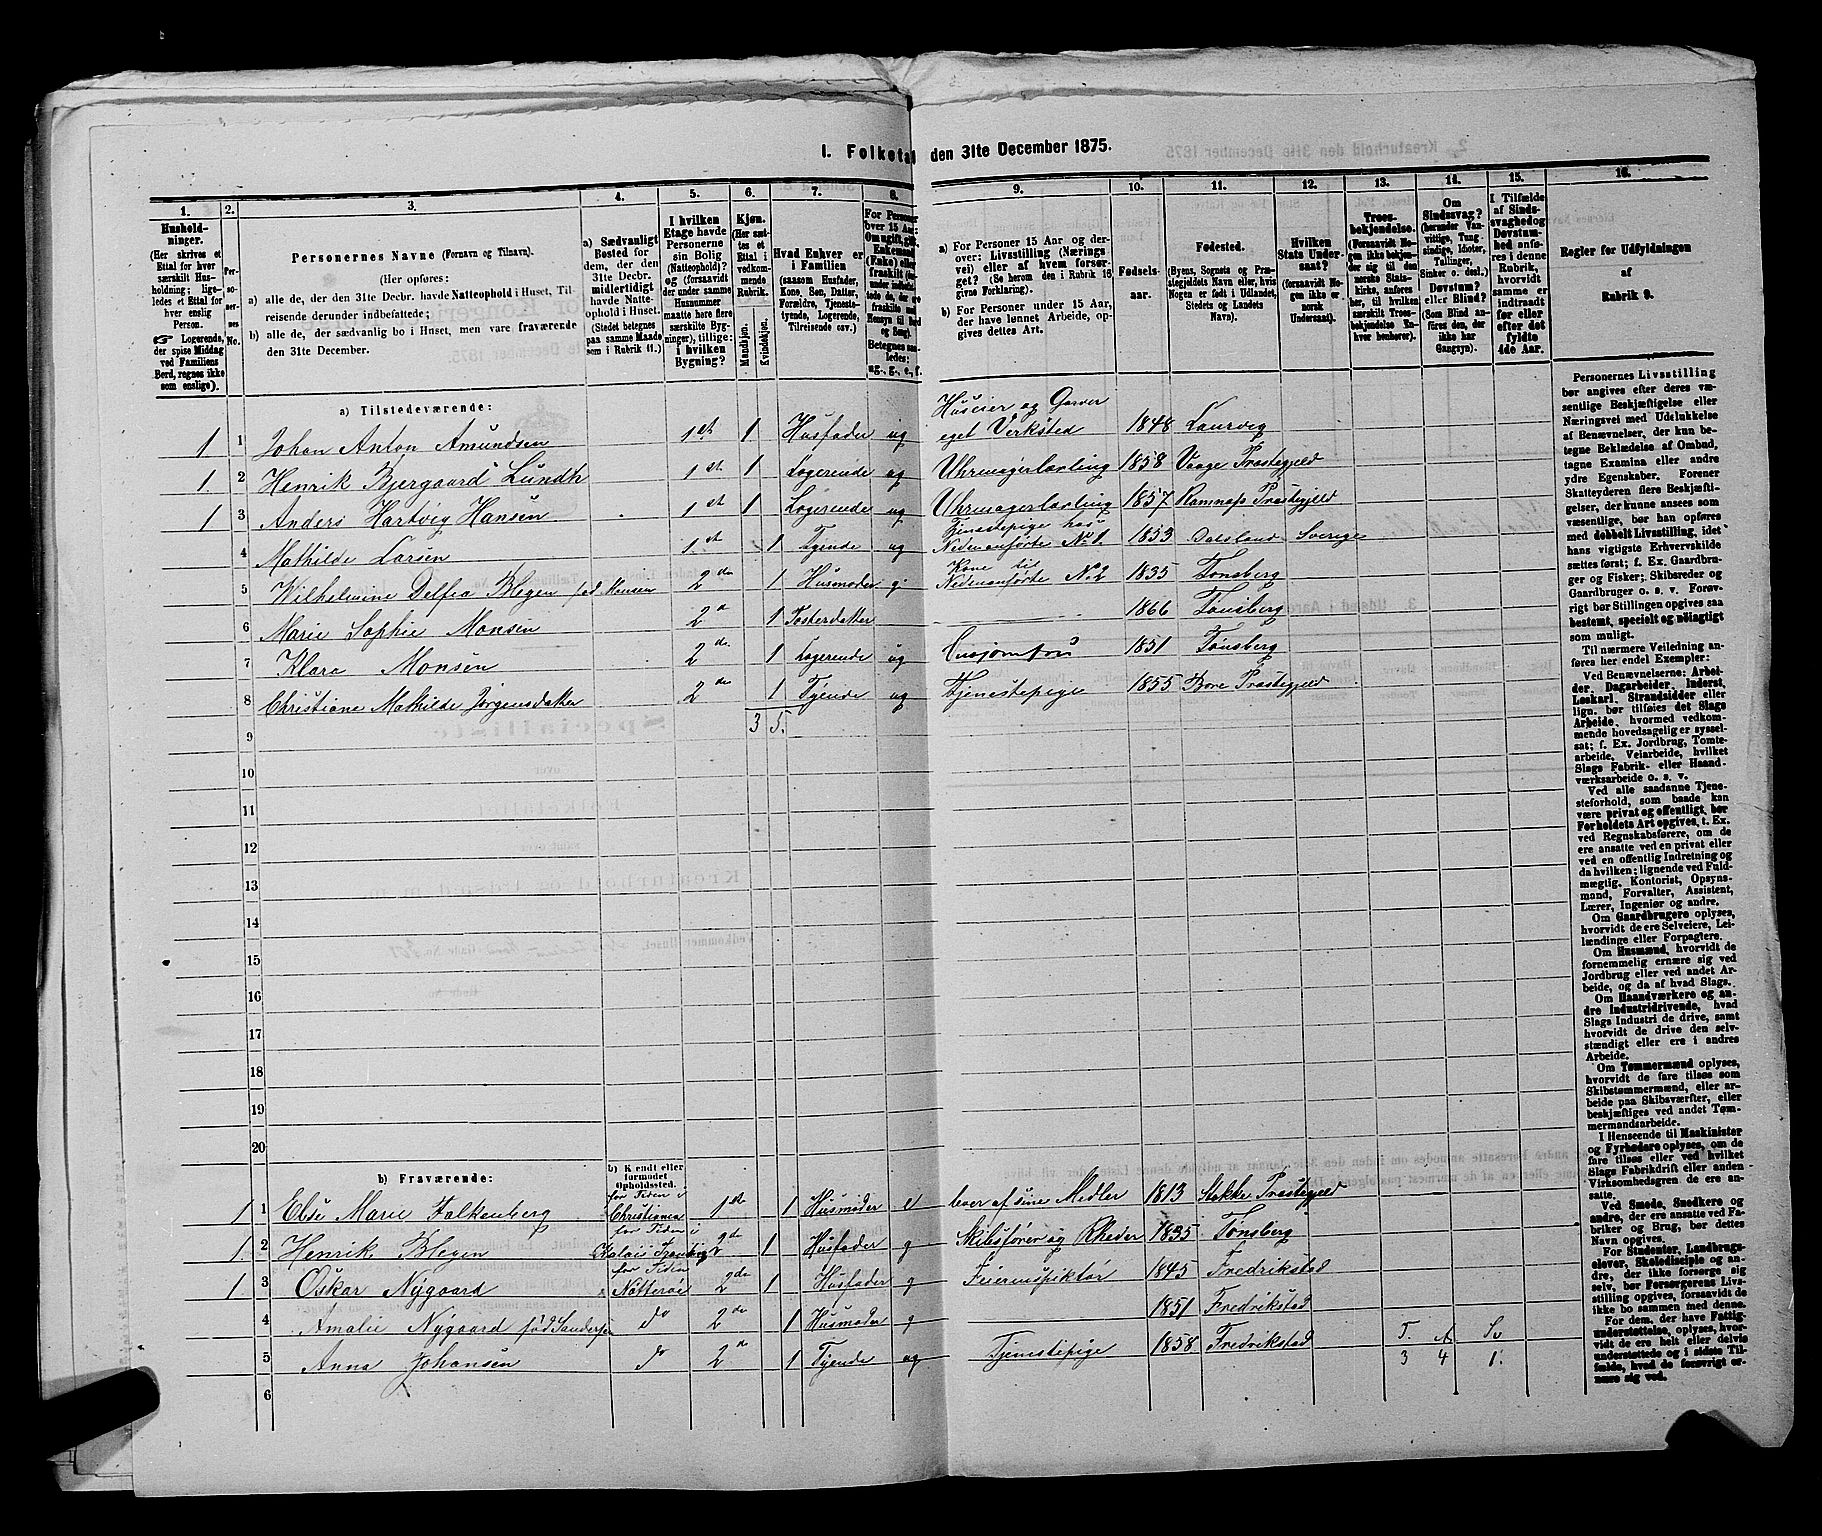 I. Folketal den 31te December 1875.
1. 2. 3. 4. 5. 6. 7. 8. 9. 10. 11. 12. 13. 14. 15. 16.
Hushold-
ninger.
(Her skrives et
Ettal for hver
særskilt Hus-
holdning; lige-
ledes et Ettal for
hver enslig
Person.
☞ Logerende,
der spise Middag
ved Familiens
Bord, regnes ikke
som enslige).
Per-
so-
ner-
nes
No.
Personernes Navne (Fornavn og Tilnavn).
(Her opføres:
a) alle de, der den 31te Decbr. havde Natteophold i Huset, Til-
reisende derunder indbefattede;
b) alle de, der sædvanlig bo i Huset, men vare fraværende
den 31te December.
a) Sædvanligt
Bosted for
dem, der den
31te Decbr.
midlertidigt
havde Natte-
ophold i Huset.
(Stedet betegnes
paa samme Maade
som i Rubrik 11.)
I hvilken
Etage havde
Personerne
sin Bolig
(Natteophold)?
og (forsaavidt
der under samme
Husnummer
maatte høre flere
særskilte Byg-
ninger), tillige:
i hvilken
Bygning?
Kjøn.
(Her sæt-
tes et
Ettal i
vedkom-
mende
Rubrik.
Mandkjøn.
Kvindekjøn.
Hvad Enhver er
i Familien
(saasom Husfader,
Kone, Søn, Datter,
Forældre, Tjeneste-
tyende, Logerende,
Tilreisende osv.)
For Personer
over 15 Aar:
Om ugift, gift,
Betegnes saa-
ledes:
ug., g., e., f.
a) For Personer 15 Aar og der-
over: Livsstilling (Nærings
vei) eller af hvem forsør-
get? (Se herom den i Rubrik 16
givne Forklaring).
b) For Personer under 15 Aar,
der have lønnet Arbeide, op-
gives dettes Art.
Fødsels-
aar.
Fødested.
(Byens, Sognets og Præ-
stegjeldets Navn eller, hvis
Nogen er født i Udlandet,
Stedets og Landets
Navn).
Hvilken
Stats Under-
saat?
(Opgives for No-
gen ikke er
norsk
Undersaat).
Troes-
bekjendelse.
(Forsaavidt No-
gen ikke bekjen-
der sig til den
norske Stats-
kirke, anføres
her, til hvilken
særskilt Troes-
bekjendelse En-
hver henhører).
Om
Sindssvag?
(herunder Van-
vittige, Tung-
sindige, Idioter,
Tullinger,
Sinker o. desl.)
Døvstum?
eller Blind?
(Som Blind an-
føres den, der
ikke har
Gangsyn).
I Tilfælde
af Sinds-
svaghed og
Døvstum-
hed anfø-
res i denne
Rubrik,
hvorvidt
samme er
indtraadt
før eller
efter det
fyldte
4de Aar.
Regler for Udfyldningen
af
Rubrik 9.
a) Tilstedeværende:
Huseier og Garver
1 1 Johan Anton Amundsen 1st 1 Husfader ug eget Verksted 1848 Laurvig
1. 2 Henrik Bjergaard Lundh 1st 1 Logerende ug Uhrmagerlærling 1858 Vaage Præstegjeld
1 3 Anders Hartvig Hansen 1st 1 Logerende ug Uhrmagerlærling 1857 Ramnæs Præstegjeld
Tjenestepige hos
4 Mathilde Larsen 1st 1 Tyende ug Nedenanførte No 1. 1853 Dalsland Sverige
Kone til
5 Wilhelmine Delfia Blegen fød Monsen 2de 1 Husmoder g. Nedenanførte No 2 1835 Tønsberg
6 Marie Sophie Monsen 2d 1 Fosterdatter 1866 Tønsberg
7 Klara Monsen 2de 1 Logerende ug 1851 Tønsberg
8 Christiane Mathilde Jørgensdatter 2de 1 Tyende ug Tjenestepige 1855 Borre Præstegjeld
9 3 5.
10
11
12
13
14
15
16
17
18
19
20
b) Fraværende:
b) Kendt eller
formodet
Opholdssted.
for Tiden i
1 1 Else Marie Falkenberg Christiania 1st 1 Husmoder e lever af sine Midler 1813 Stokke Præstegjeld
for Tiden i
1 2 Henrik Blegen Kalais Frankrig 2de 1 Husfader g Skibsfører og Rheder 1835 Tønsberg
for Tiden
1 3 Oskar Nygaard Nøtterøe 2de 1 Husfader g 1845 Fredrikstad
4 Amalie Nygaard fød Sandersen do 2de 1 Husmoder g 1851 Fredrikstad
5 Anna Johansen do 2d 1 Tyende ug Tjenestepige 1858 Fredrikstad
T. A Sv
3 4 1.
6
Personernes Livsstilling
bør angives efter deres væ-
sentlige Beskjæftigelse eller
Næringsvei med Udelukkelse
af Benævnelser, der kun be-
tegne Beklædelse af Ombud,
tagne Examina eller andre
ydre Egenskaber. Forener
Skatteyderen flere Beskjæfti-
gelser, der kunne ansees som
væsentlige, bør han opføres
med dobbelt Livsstilling, idet
hans vigtigste Erhvervskilde
sættes først; f. Ex. Gaardbru-
ger og Fisker; Skibsreder og
Gaardbruger o. s. v. Forøv-
rigt bør Stillingen opgives saa
bestemt, specielt og nøiagtigt
som muligt.
Til nærmere Veiledning an-
føres her endel Exempler:
Ved Benævnelserne: Arbei-
der, Dagarbeider, Inderst,
Løskarl, Strandsidder eller
lign. bør tilføies det Slags
Arbeide, hvormed vedkom-
mende hovedsagelig er syssel-
sat; f. Ex. Jordbrug, Tomte-
arbeide, Veiarbeide, hvilket
Slags Fabrik- eller Haand-
værksarbeide o. s. v.
Ved alle saadanne Tjene-
steforhold, som baade kan
være privat og offentligt, bør
Forholdets Art opgives, t. Ex.
ved Regnskabsførere, om de
ere ansatte ved en privat eller
ved en offentlig Indretning og
da hvilken; lignende ved Fuld-
mægtig, Kontorist, Opsyns-
mand, Forvalter, Assistent,
Lærer, Ingeniør og andre.
Om Gaardbrugere oplyses,
hvorvidt de ere Selveiere, Lei-
lændinge eller Forpagtere.
Om Husmænd, hvorvidt de
fornemmelig ernære sig ved
Jordbrug eller ved andet Ar-
beide, og da af hvad Slags.
Om Haandværkere og an-
dre Industridrivende, hvad
Slags Industri de drive, samt
hvorvidt de drive den selv-
stændigt eller ere i andres
Arbeide.
Om Tømmermænd oplyses,
hvorvidt de fare tilsøs som
Skibstømmermænd, eller ar-
beide paa Skibsværfter, eller
beskjæftiges ved andet Tøm-
mermandsarbeide.
I Henseende til Maskinister
og Fyrbødere oplyses, om de
fare tilsøs eller ved hvilket
Slags Fabrikdrift eller anden
Virksomhedsgren de ere an-
satte.
Ved Smede, Snedkere og
andre, der ere ansatte ved Fa-
briker og Brug, bør dettes
Navn opgives.
For Studenter, Landbrugs-
elever, Skoledisciple og an-
dre, der ikke forsørge sig
selv, bør Forsørgerens Livs-
stilling opgives, forsaavidt de
ikke bo sammen med denne.
For dem, der have Fattig-
understøttelse, oplyses, hvor-
vidt de ere helt eller delvis
understøttede og i sidste Til-
fælde, hvad de forøvrigt er-
nære sig ved.